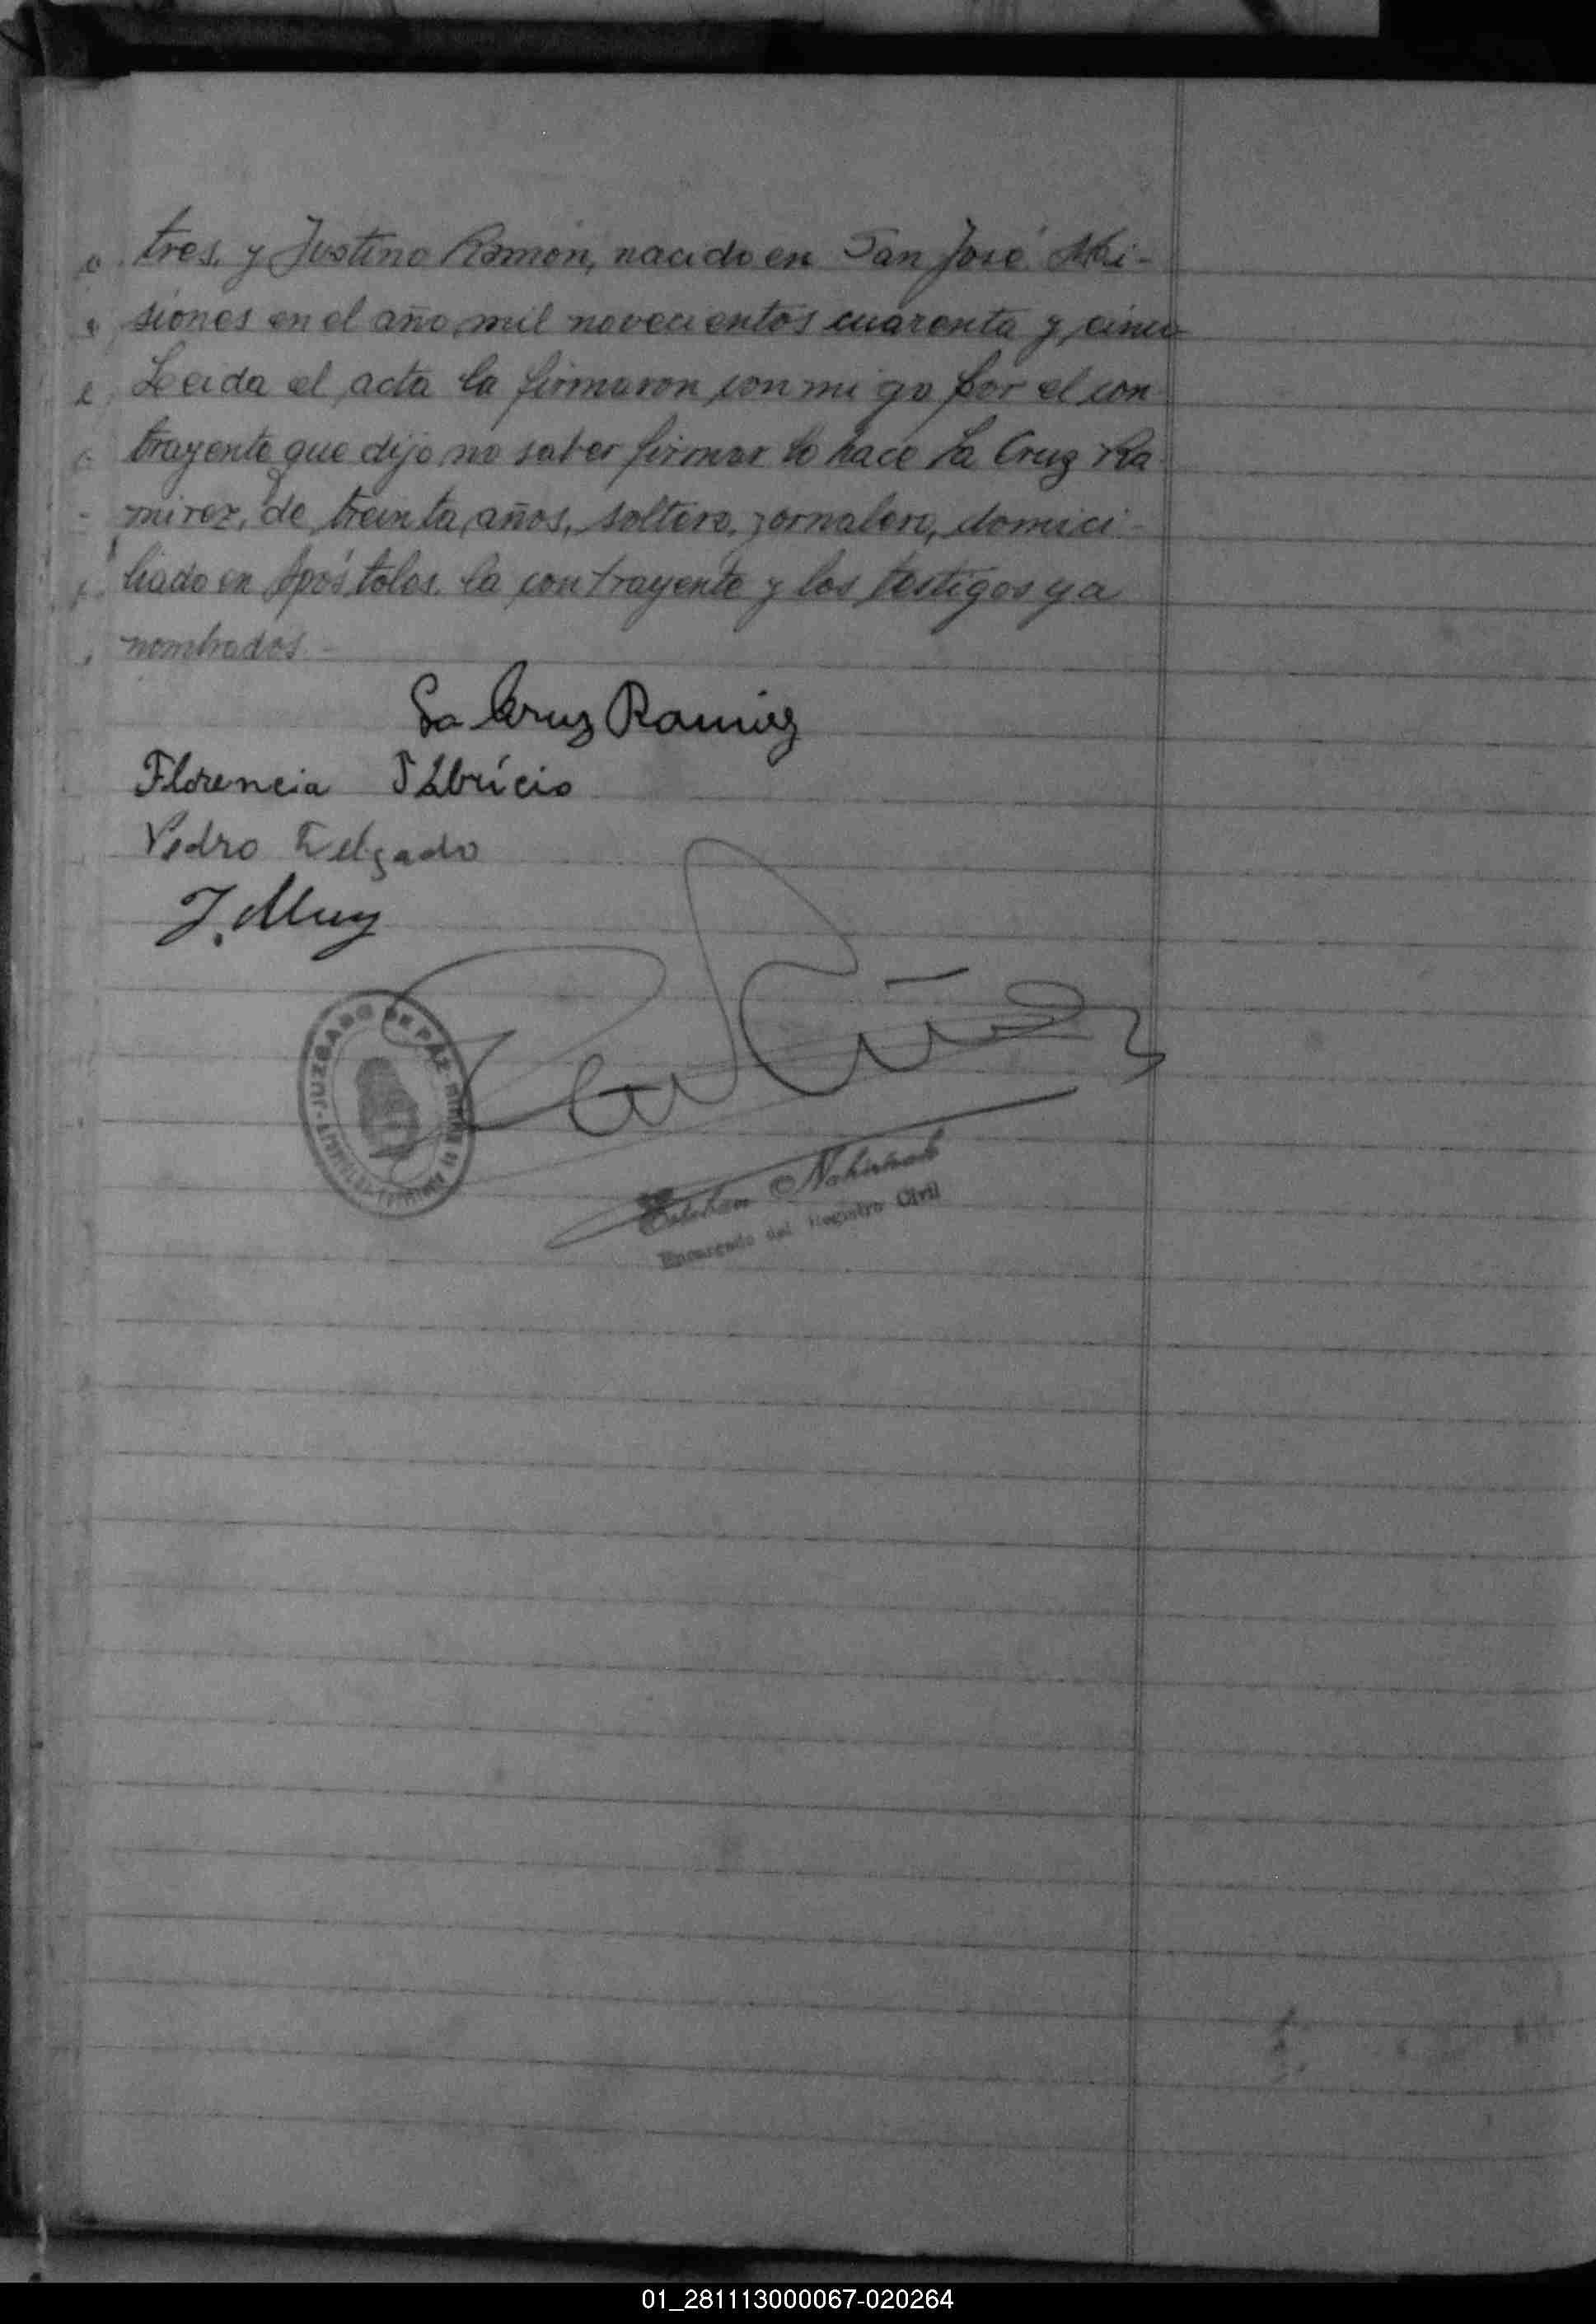 tres. y Justino Ramón, nacido en San José Mi-
siones en el año mil novecientos cuarenta y cinco
Leida el acta la firmaron con mi go por el con
trayente que dijo no saber firmar lo hace La Cruz Ra
mirez, de treinta años, soltero, jornalero, domici-
liado en Apóstoles la contrayente y los testigos ya
nombrados.-
La Cruz Ramirez
Florencia Fabricio
Pedro Delgado
JUZGADO DE PAZ
Esteban
Encargado del Registro Civil
01_281113000067-020264